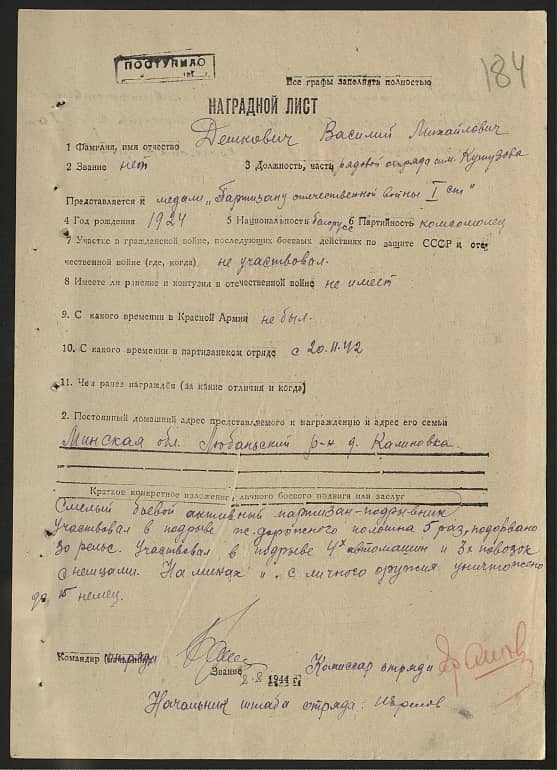 ПОСТУПИЛО
184
Все графы заполнять полностью
НАГРАДНОЙ ЛИСТ
1 Фамилия, имя отчество Дешкович Василий Михайлович
2 Звание нет 3 Должность, часть рядовой отряда им. Кутузова
Представляется й медали „Партизану отечественной войны I ст"
4 Год рождения 1924 5 Национальность белорусс 6 Партийность комсомолец
7 Участие в гражданской войне, последующих боевых действиях по защите СССР и оте
чественной войне (где, когда) не участвовал.
8 Имеете ли ранение и контузия в отечественной войне не имеет
9. С какого времении в Красной Армии не был.
10. С какого времении в партизанском отряде с 20.11.42
11. Чем ранее награждён (за какие отличия и когда)
2. Постоянный домашний адрес представляемого к награждению и адрес его семьи
Минская обл. Любаньский р-н д. Калиновка.
Краткое конкретное изложение личного боевого подвига или заслуг
Смелый боевой активный партизан-подрывник
Участвовал в подрыве ж.дорожного полотна 5 раз, подорвано
30 рельс. Участвовал в подрыве 4х автомашин и 3х повозок
с немцами. На минах и с личного оружия уничтожено
до 15 немец.
Командир отряда
Комиссар отряда
Звание 8.8 1944 г.
Начальник штаба отряда: